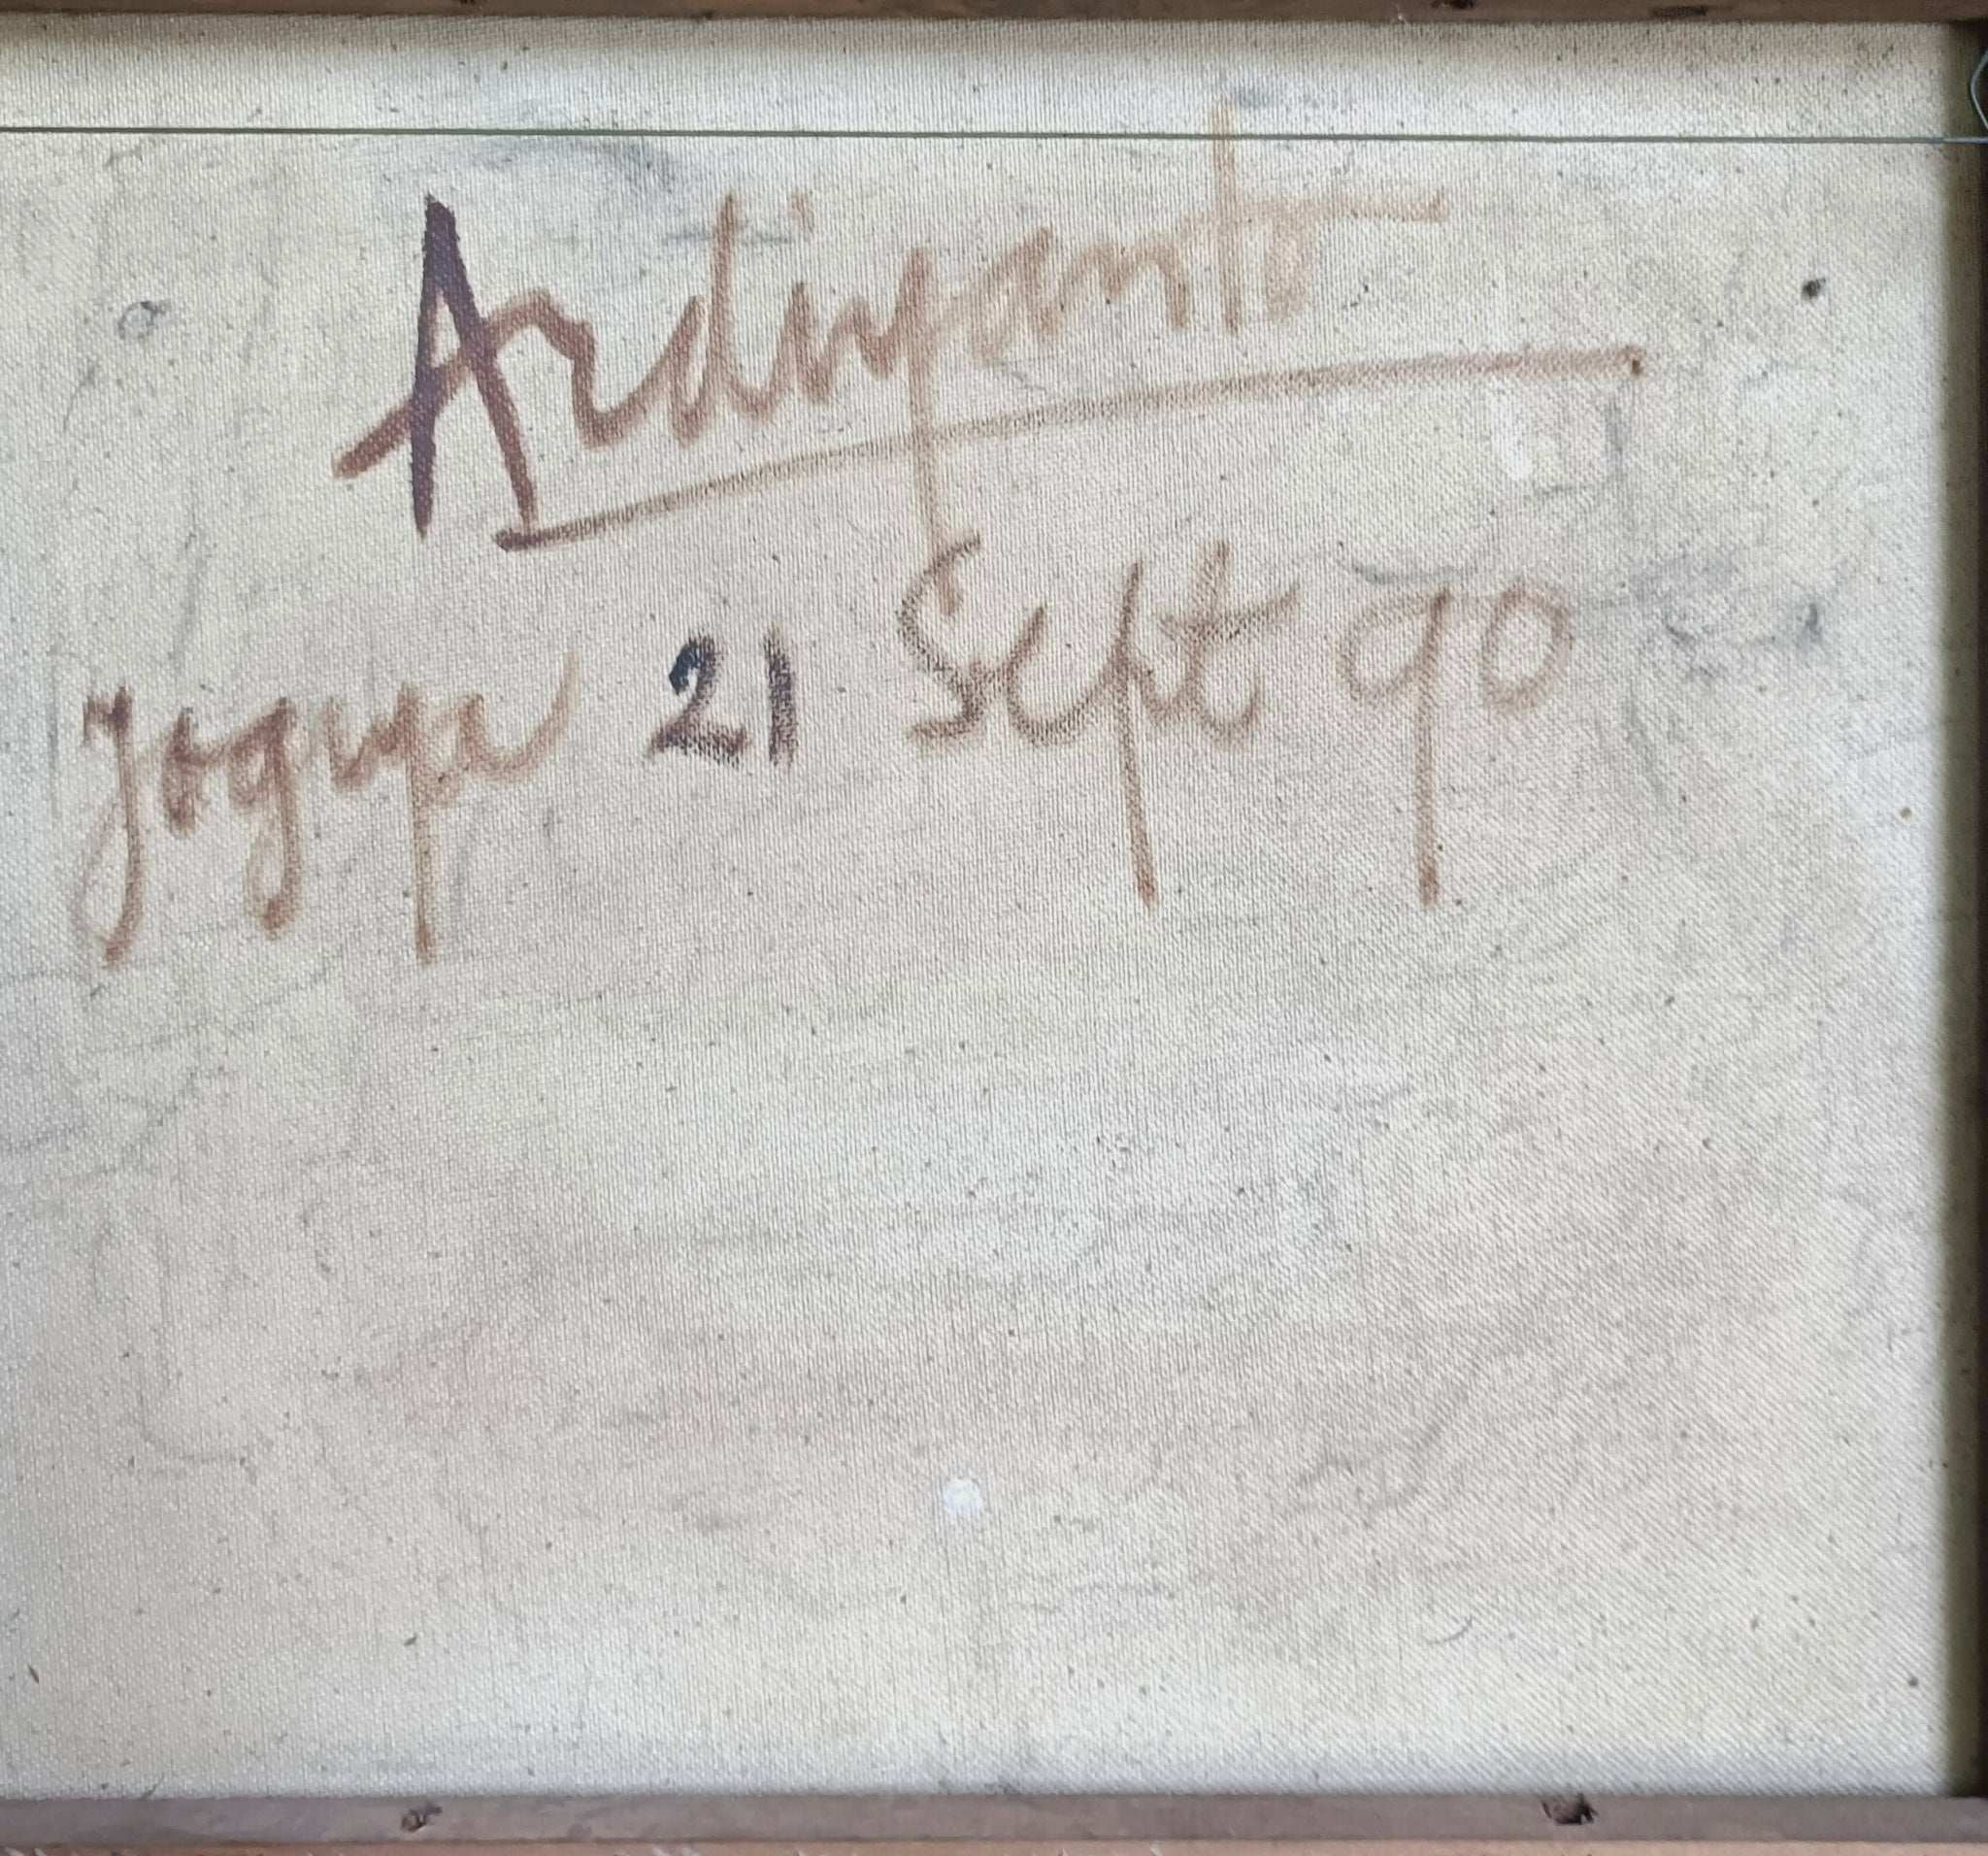 Ardiyanto
Jogya 21 Sept 90